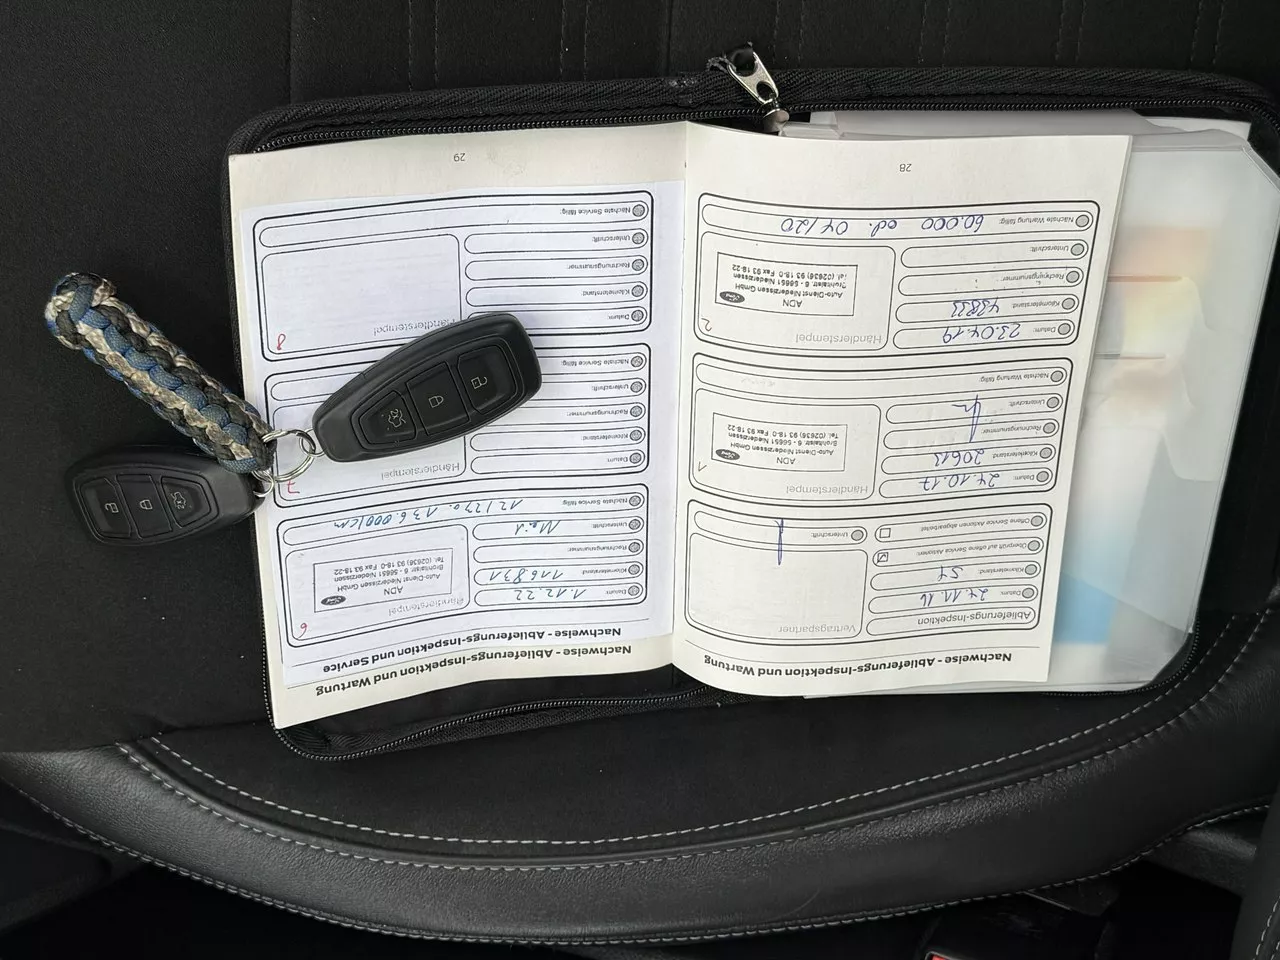 Nachweise - Ablieferungs-Inspektion und Wartung
Ablieferungs-Inspektion
Datum: 24.11.16
Kilometerstand: 51
Überprüft auf offene Service Aktionen:
Offene Service Aktionen abgearbeitet:
Vertragspartner
Unterschrift:
Datum: 24.10.17
Kilometerstand: 20613
Rechnungsnummer:
Unterschrift:
Nächste Wartung fällig:
Händlerstempel
1
ADN
Auto-Dienst Niederzissen GmbH
Brohltalstr. 6 - 56651 Niederzissen
Tel. (02636) 93 18-0 Fax 93 18-22
Ford
Datum: 23.04.19
Kilometerstand: 43833
Rechnungsnummer:
Unterschrift:
Nächste Wartung fällig: 60.000 od. 04/20
Händlerstempel
2
ADN
Auto-Dienst Niederzissen GmbH
Brohltalstr. 6 - 56651 Niederzissen
Tel. (02636) 93 18-0 Fax 93 18-22
Ford
28
Nachweise - Ablieferungs-Inspektion und Wartung
Nachweise - Ablieferungs-Inspektion und Service
Datum: 1.12.22
Kilometerstand: 116831
Rechnungsnummer:
Unterschrift:
Nächste Service fällig: 12/23 o. 136.000/km
Händlerstempel
6
ADN
Auto-Dienst Niederzissen GmbH
Brohltalstr. 6 - 56651 Niederzissen
Tel. (02636) 93 18-0 Fax 93 18-22
Ford
Datum:
Kilometerstand:
Rechnungsnummer:
Unterschrift:
Nächste Service fällig:
Händlerstempel
7
Datum:
Kilometerstand:
Rechnungsnummer:
Unterschrift:
Nächste Service fällig:
Händlerstempel
8
29